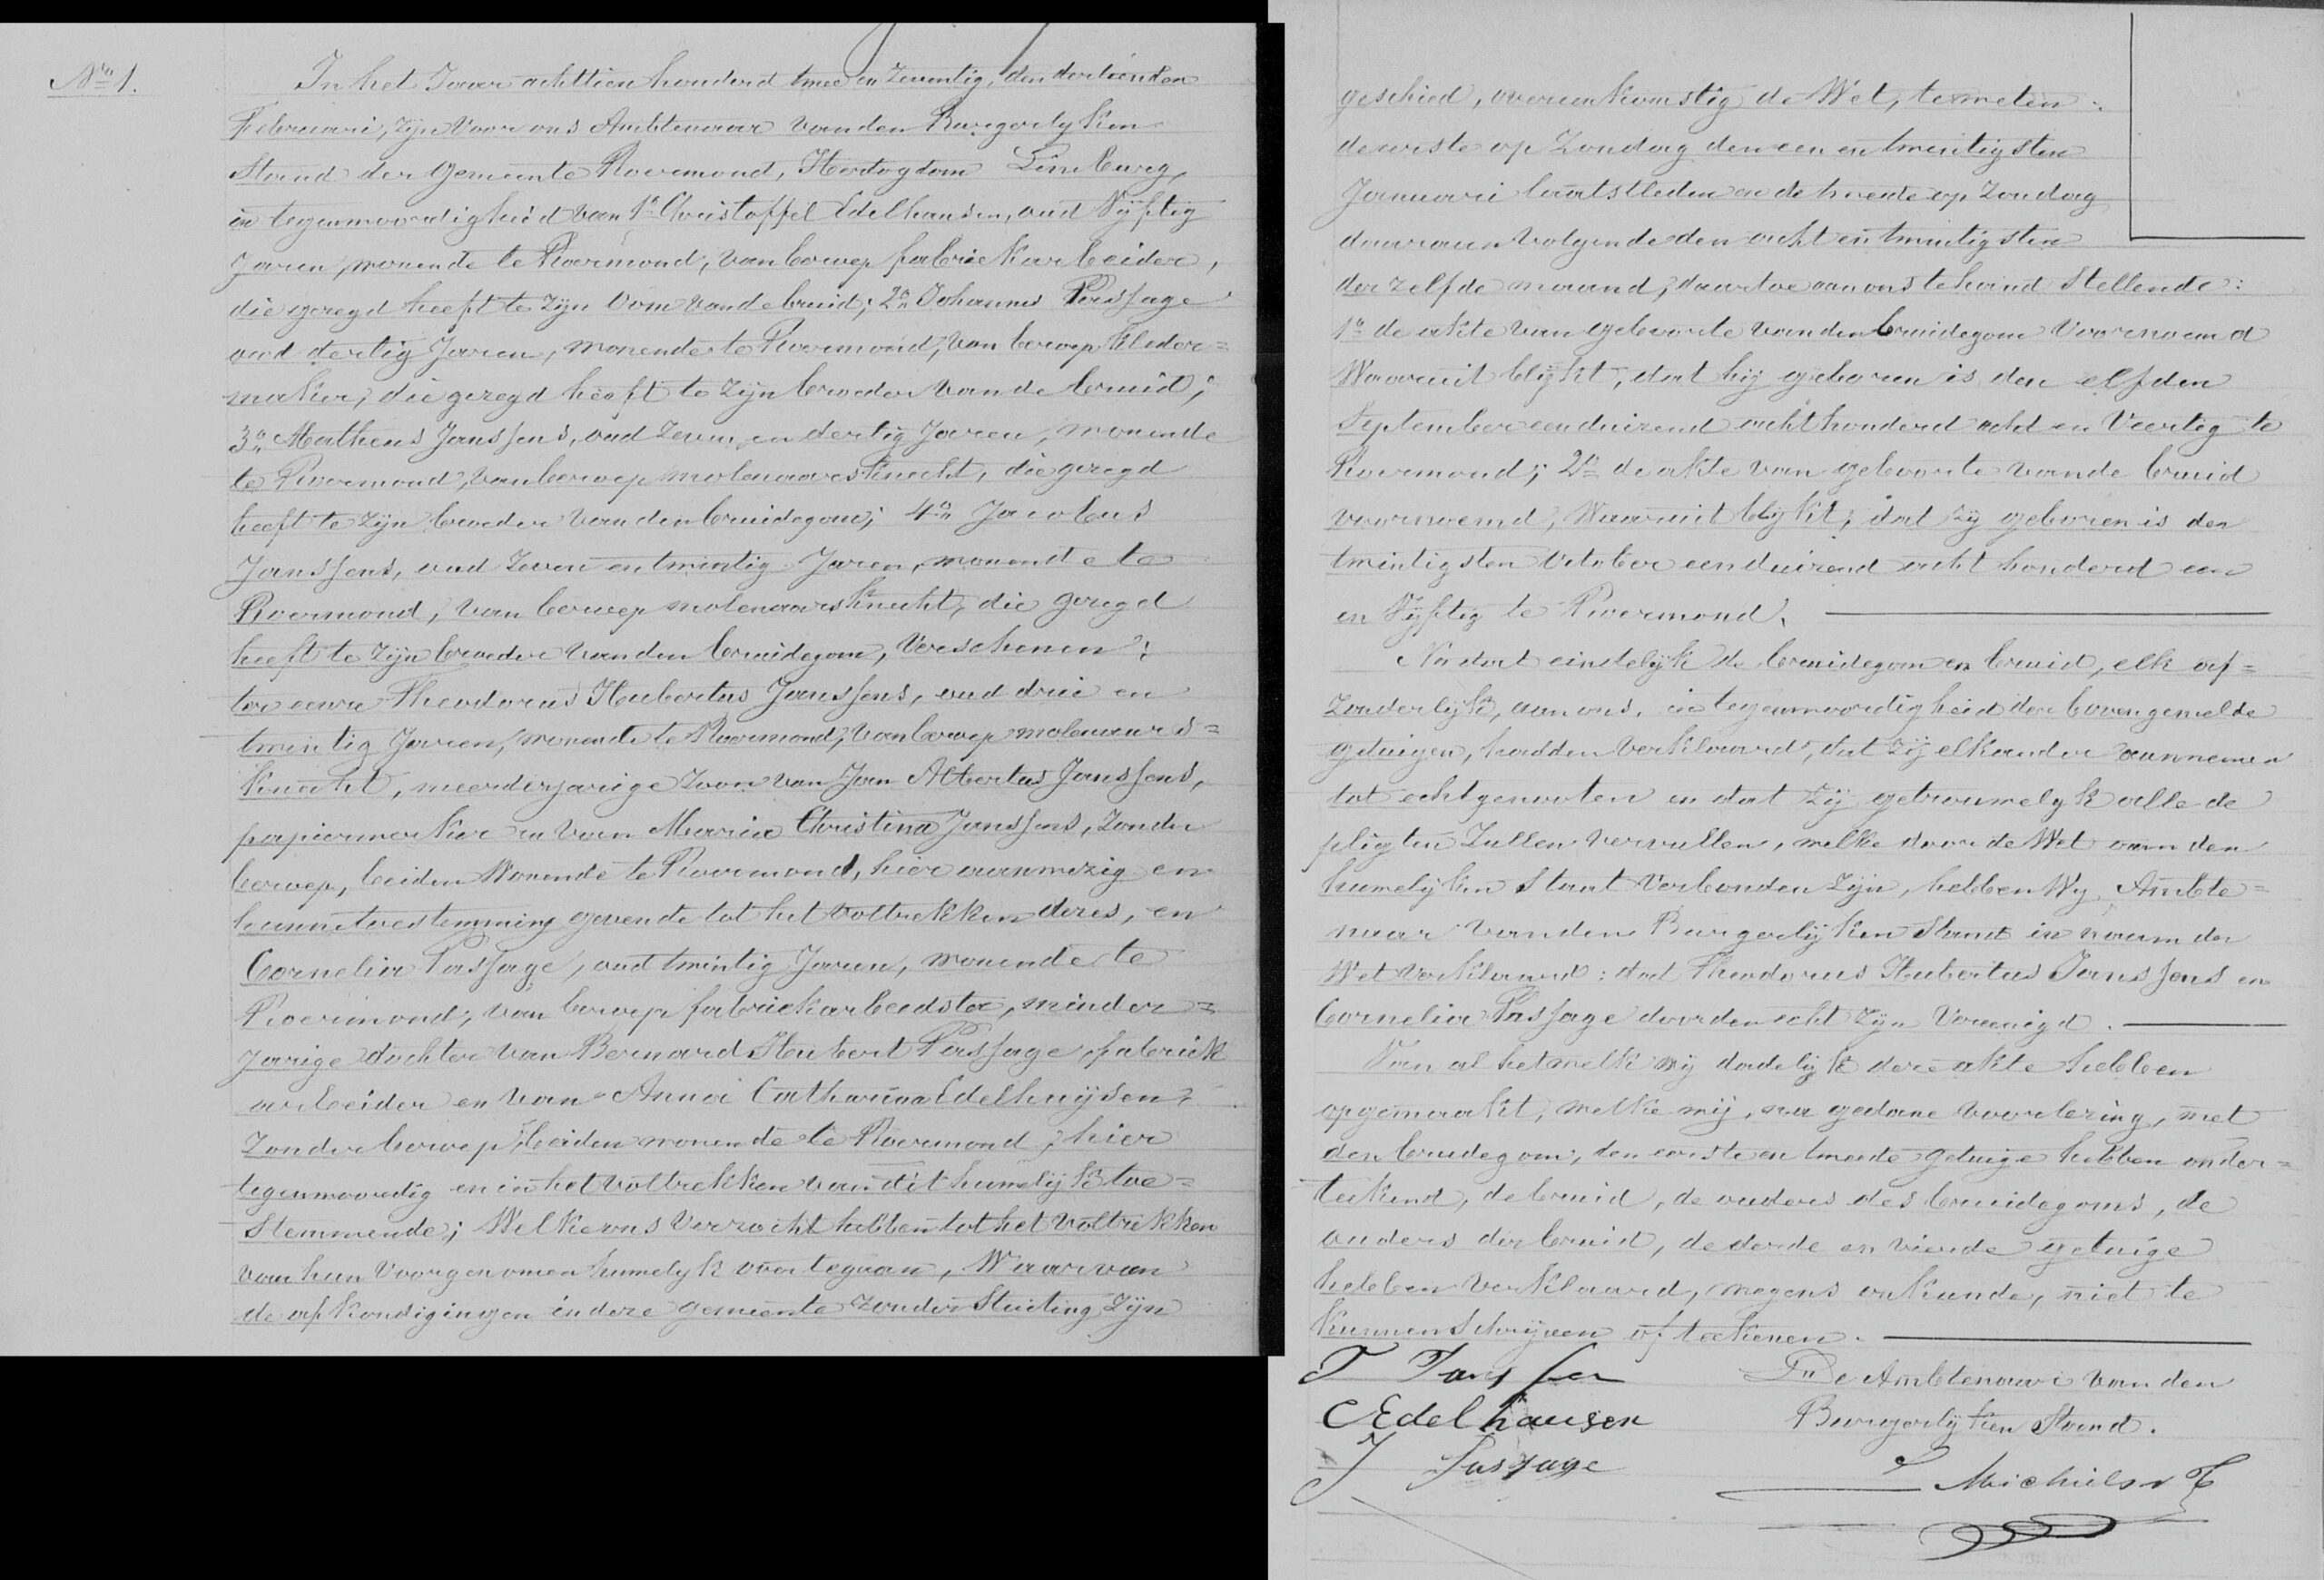 No 1.
In het Jaar achttien honderd twee en Zeventig, den dertienden
Februari, zijn voor ons Ambtenaar van den Burgerlyken
Stand der Gemeente Roermond, Hertogdom Limburg,
in tegenwoordigheid van 1o Christoffel Edelhausen, oud Vijftig
Jaren, wonende te Roermond, van beroep fabriekarbeider,
die gezegd heeft te zijn Oom van de bruid; 2o Johannes Passage
oud dertig Jaren, wonende te Roermond, van beroep kleder=
maker, die gezegd heeft te zijn broeder van de bruid;
3o Matheus Janssens, oud zeven en dertig Jaren, wonende
te Roermond, van beroep molenaarsknecht, die gezegd
heeft te zijn broeder van den bruidegom; 4o Jacobus
Janssens, oud zeven en twintig Jaren, wonende te
Roermond, van beroep molenaarsknecht, die gezegd
heeft te zijn broeder van den bruidegom, Verschenen:
ter eenre Theodorus Hubertus Janssens, oud drie en
twintig Jaren, wonende te Roermond, van beroep molenaars=
knecht, meerderjarige zoon van Jan Albertus Janssens,
papiermaker en van Maria Christina Janssens, Zonder
beroep, beiden Wonende te Roermond, hier aanwezig en
hunne toestemming gevende tot het voltrekken dezes, en
Cornelia Passage, oud twintig Jaren, wonende te
Roermond, van beroep fabriekarbeidster, minder=
jarige dochter van Bernard Hubert Passage, fabriek
arbeider en van Anna Catharina Edelhuijsen,
Zonder beroep, beiden wonende te Roermond, hier
tegenwoordig en in het voltrekken van dit huwelijk toe=
Stemmende; Welke ons verzocht hebben tot het voltrekken
van hun voorgenomen huwelyk over tegaan, Waarvan
de afkondigingen in deze gemeente zonder Stuiting zijn
geschied, overeenkomstig de Wet, te weten:
de eerste op Zondag den een en twintigsten
Januari laatstleden en de tweede op Zondag
daaraan volgende den acht en twintigsten
der zelfde maand, daartoe aan ons te hand Stellende:
1o de akte van geboorte van den bruidegom Voornoemd
Waaruit blijkt, dat hij geboren is den elfden
September eenduizend achthonderd acht en Veertig te
Roermond; 2o de akte van geboorte van de bruid
voornoemd, Waaruit blykt, dat zy geboren is den
twintigsten October eenduizend acht honderd een
en Vijftig te Roermond.
Nadat eindelijk de bruidegom en bruid, elk af=
Zonderlijk, aan ons, in tegenwoordigheid der bovengemelde
getuigen, hadden verklaard, dat zij elkander aannemen
tot echtgenooten en dat zij getrouwelyk alle de
pligten Zullen vervullen, welke door de Wet aan den
huwelijken Staat Verbonden zijn, hebben Wy Ambte=
naar van den Burgerlijken Stand in naam der
Wet verklaard: dat Theodorus Hubertus Janssens en
Cornelia Passage door den echt zijn Vereenigd.
Van al hetwelk wij dadelijk deze akte hebben
opgemaakt, welke wij, na gedane voorlezing, met
den bruidegom, den eerste en tweede getuige hebben onder=
teekend, de bruid, de ouders des bruidegoms, de
ouders der bruid, de derde en vierde getuige
hebben verklaard, wegens onkunde, niet te
kunnen Schrijven of teekenen.
T Janssen
De Ambtenaar van den
C Edelhausen
Burgerlijken Stand.
J Passage
Michiels